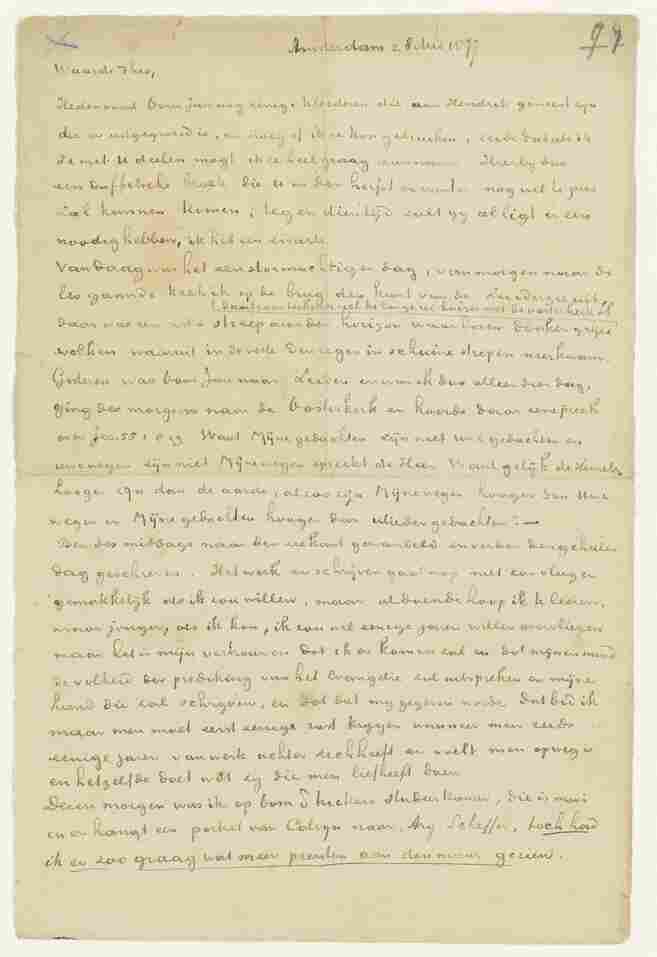 Amsterdam 28 Mei 1877
Waarde Theo,
Heden vond Oom Jan nog eenige kleederen die van Hendrik geweest zijn
die er uitgegroeid is, en vroeg of ik ze kon gebruiken,
ze met U deelen mogt ik ze heel graag aannemen. Hierbij dus
een duffelsche broek die U in den herfst en winter nog wel te pas
zal kunnen komen, tegen dien tijd zult gij al ligt er een
noodig hebben, ik heb een zwarte.
Vandaag was het een stormachtigen dag, van morgen naar de
les gaande keek ik op de brug den kant van de Zuiderzee uit,
daar was een witte streep aan den horizon waarboven donker grijze
wolken waaruit in de verte de regen in schuine strepen neerkwam.
(daartegen de lange rei huizen met de oosterkerk)
Gisteren was Oom Jan naar Leiden en was ik dus alleen dien dag,
ging des morgens naar de Oosterkerk en hoorde daar een preek
over Jes. 55: 8 en 9 Want Mijne gedachten zijn niet Uwe gedachten en
uwe wegen zijn niet Mijne wegen spreekt de Heer Want gelijk de Hemelen
hooger zijn dan de aarde, alzoo zijn Mijne wegen hooger dan Uwe
wegen en Mijne gedachten hooger dan ulieder gedachten". —
Ben des middags naar den zeekant gewandeld en verder den geheelen
dag geschreven. Het werk en schrijven gaat nog niet zoo vlug en
gemakkelijk als ik zou willen, maar al doende hoop ik te leeren,
maar jongen, als ik kon, ik zou wel eenige jaren willen overvliegen
maar het is mijn vertrouwen dat ik er komen zal en dat mijnen mond
de volheid der prediking van het Evangelie zal uitspreken en mijne
hand die zal schrijven, en dat dat mij gegeven worde dat bid ik
maar men moet eerst eenige rust krijgen wanneer men reeds
eenige jaren van werk achter zich heeft en voelt men op weg is
en hetzelfde doet wat zij die men liefheeft doen
Dezen morgen was ik op Oom Strickers studeerkamer, die is mooi
en er hangt een portret van Calvijn naar Ary Scheffer, toch had
ik er zoo graag wat meer prenten aan den muur gezien.